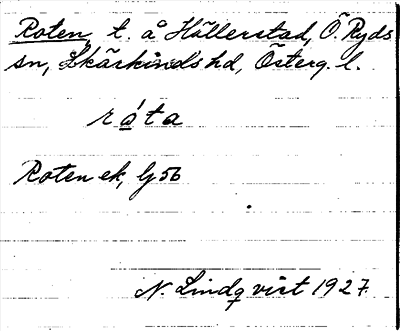 Roten, t. å Hällerstad, Ö. Ryds
sn, Skärkinds hd, Österg. l.
ró̲ta
Roten ek, Gj 56
N Lindqvist 1927